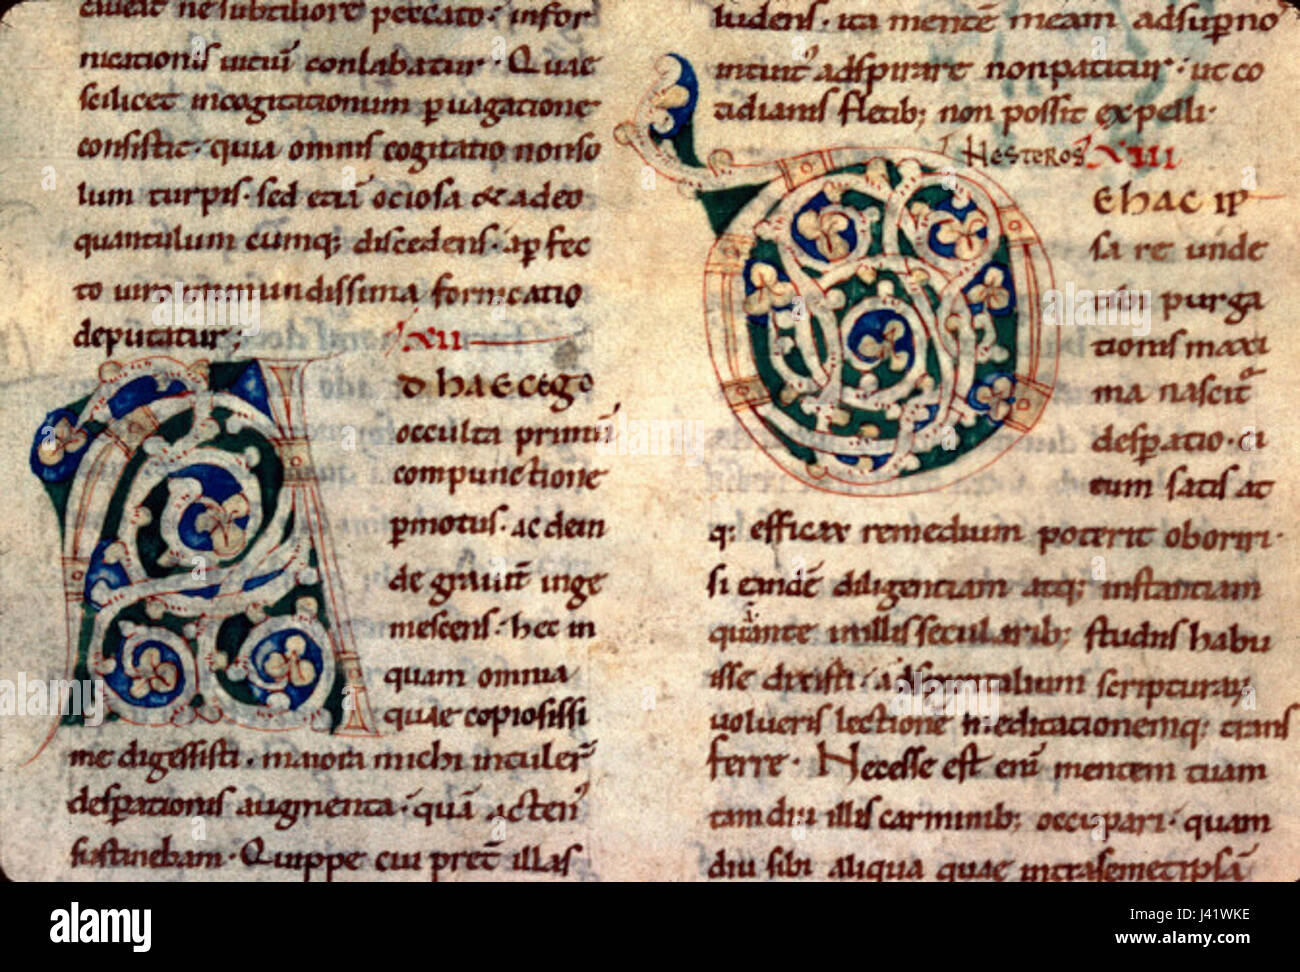 caueat ne subtiliore peccato · infor
nicationis uiciū conlabatur · Quae
scilicet incogitationum ꝑuagatione
consistit · quia omnis cogitatio nonso
lum turpis · sed etiā ociosa & adeo
quantulum cumq; discedens · aꝑfec
to uiro inmundissima fornicatio
deputatur;
XII
A
D HAEC EGO
occulta primū
compunctione
ꝑmotus · ac dein
de grauit̄ inge
mescens · hec in
quam omnia
quae copiosissi
me digessisti · maiorā michi intuler̄
desꝑationis augmenta · quā acten᾽
sustinebam · Quippe cui pret̄ illas
ludens · ita mentē meam adsuꝑno
intuit᾽ adspirare nonpatitur · ut co
tidianis fletib; non possit expelli ·
NHESTEROS. XIII
D
E HAC IP
sa re unde
tibi purga
tionis maxi
ma nascit᾽
desꝑatio · ci
tum satis at
q; efficax remedium poterit oboriri ·
si eandē diligentiam atq; instantiam
quā inte in illis secularib; studiis habu
isse dixisti · adspiritalium scripturarū
uolueris lectione meditationemq; trans
ferre · Necesse est enī mentem tuam
tamdiu illis carminib; occupari · quam
diu sibi aliqua quae intrasemetipsā
alamy stock photo
J41WKE
www.alamy.com